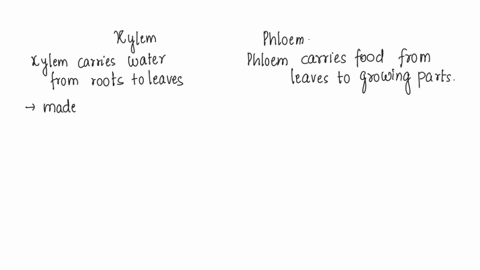 Xylem
Xylem carries water
from roots to leaves
→ made
Phloem.
Phloem carries food from
leaves to growing parts.